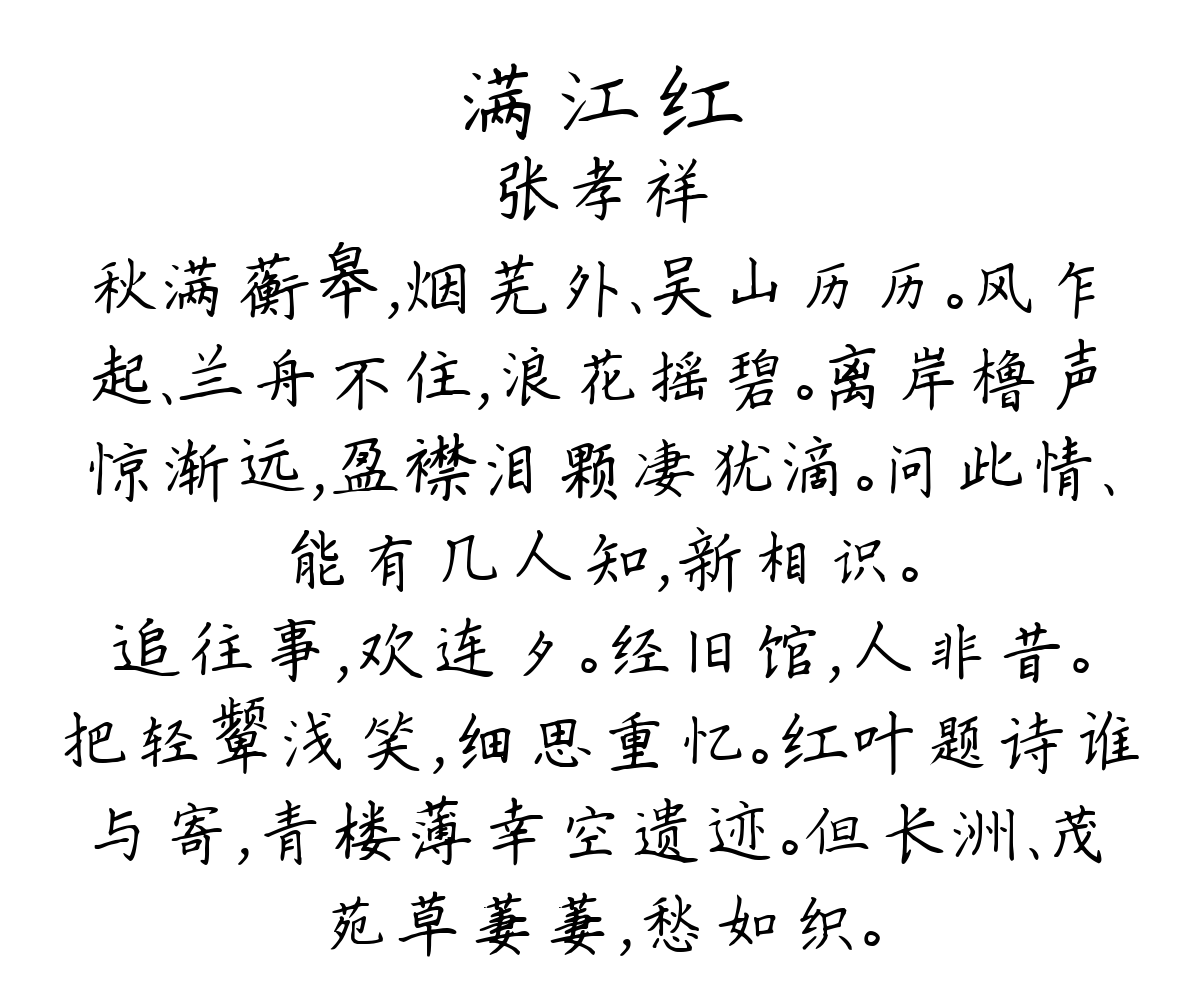 满江红
张孝祥
秋满蘅皋,烟芜外、吴山历历。风乍
起、兰舟不住,浪花摇碧。离岸橹声
惊渐远,盈襟泪颗凄犹滴。问此情、
能有几人知,新相识。
追往事,欢连夕。经旧馆,人非昔。
把轻颦浅笑,细思重忆。红叶题诗谁
与寄,青楼薄幸空遗迹。但长洲、茂
苑草萋萋,愁如织。